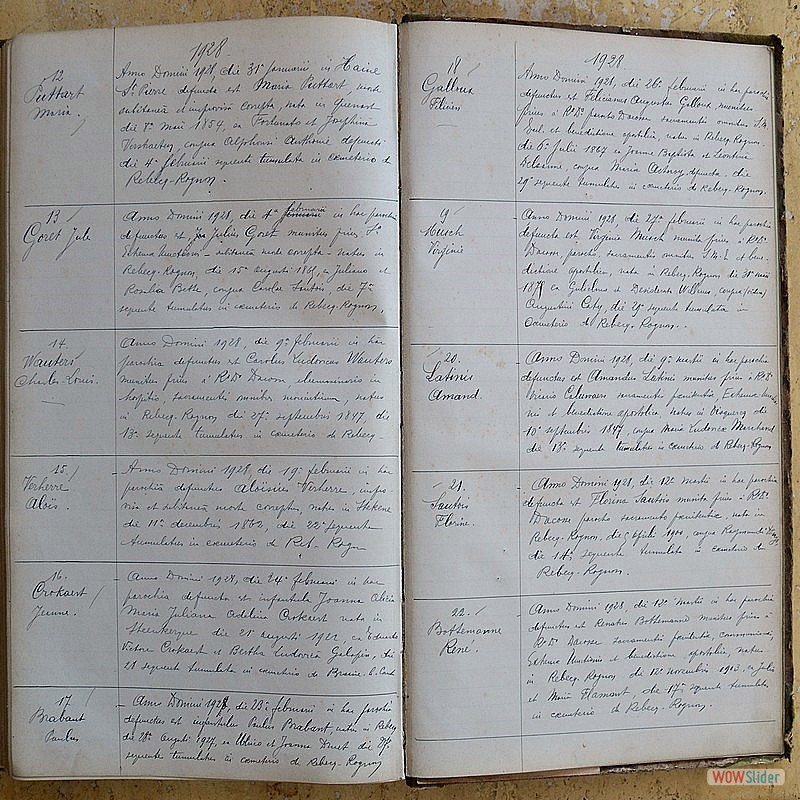 1928
12
Puttart
Maria.
Anno Domini 1928, die 31a Januarii in Haine
St Pierre defuncta est Maria Puttart, morte
subitanea et improvisa correpta, nata in Quenast
die 8a Maii 1854, ex Fortunato et Josephina
Verhaeten, conjux Alphonsi Anthoine defuncti
die 4a februarii sequente tumulata in cemeterio de
Rebecq-Rognon.
13
Goret Jule
Anno Domini 1928, die 4a februarii in hac parochia
defunctus est Julius Goret munitus prius Sta
Extrema Unctione - subitanea morte correpta - natus in
Rebecq-Rognon, die 15a augusti 1861, ex Juliano et
Rosalia Bette, conjux die 7a
sequente tumulatus in cemeterio de Rebecq-Rognon.
14
Wauters
Charles-Louis.
Anno Domini 1928, die 9a februarii in hac
parochia defunctus est Carolus Ludovicus Wauters
munitus prius a Rdo Dno Dacom, eleemosinario in
hospitio, sacramentis moribus, natus
in Rebecq-Rognon die 27a septembris 1847, die
13a sequente tumulatus in cemeterio de Rebecq-
15
Verherre
Aloïs.
Anno Domini 1928, die 19a februarii in hac
parochia defunctus Aloisius Verherre, impro-
visa et subitanea morte correptus, natus in Stekene
die 11a decembris 1862, die 22a sequente
tumulatus in cemeterio de Reb-Rogn
16.
Crokaert
Jeanne.
Anno Domini 1928, die 24a februarii in hac
parochia defuncta est infantula Joanna Alicia
Maria Juliana Adelina Crokaert nata in
Steenkerque die 21a augusti 1922, ex Eduardo
Victore Crokaert et Bertha Ludovica Galopin, die
28 sequente tumulata in cemeterio de Braine-l. Cont
17
Brabant
Paulus
Anno Domini 1928, die 23a februarii in hac parochia
defunctus est infantulus Paulus Brabant, natus in Rebecq
die 28a augusti 1927, ex et Joanna Druet die 27a
sequente tumulatus in cemeterio de Rebecq-Rognon
1928
18
Galloux
Félicien
Anno Domini 1928, die 26a februarii in hac parochia
defunctus est Felicianus Augustus Galloux, munitus
prius a Rdo Dno parocho Dacom sacramentis omnibus S.M.
Eccl. et benedictione apostolica, natus in Rebecq-Rognon
die 6a Julii 1867 ex Joanne Baptista et Leontina
conjux Maria defuncta, die
29a sequente tumulatus in cemeterio de Rebecq-Rognon.
9
Musch
Virginie
Anno Domini 1928, die 27a februarii in hac parochia
defuncta est Virginia Musch munita prius a Rdo Do
Dacom, parocho, sacramentis omnibus S.M.E. et bene-
dictione apostolica, nata in Rebecq-Rognon die 30a maii
187 ex Guilelmo et Desiderata conjux
Augustini die 29 sequente tumulata in
Cemeterio de Rebecq-Rognon.
20.
Latinis
Amand.
Anno Domini 1928, die 9a martii in hac parochia
defunctus est Amandus Latinis munitus prius a Rdo Do
vicario sacramentis penitentiae, Extrema Unctio-
nis et benedictione apostolica, natus in Bisquercq die
10a septembris 1847, conjux Maria Ludovica Marchand
die 13a sequente tumulatus in cemeterio de Rebecq-Rognon
21.
Sautois
Florine.
Anno Domini 1928, die 12a martii in hac parochia
defuncta est Florina Sautois munita prius a Rdo Do
Dacom parocho sacramento penitentiae, nata in
Rebecq-Rognon, die 5 aprilis 1900, conjux Raymundi
die 14a sequente tumulata in cemeterio de
Rebecq-Rognon.
22.
Bottemanne
René.
Anno Domini 1928, die 12a martii in hac parochia
defunctus est Renatus Bottemanne munitus prius a
Rdo Do Dacom sacramentis penitentiae, communionis,
Extremae Unctionis et benedictione apostolica, natus
in Rebecq-Rognon die 12a novembris 1903, ex Julio
et Maria Flamant, die 17a sequente tumulatus
in cemeterio de Rebecq-Rognon.
WOWSlider